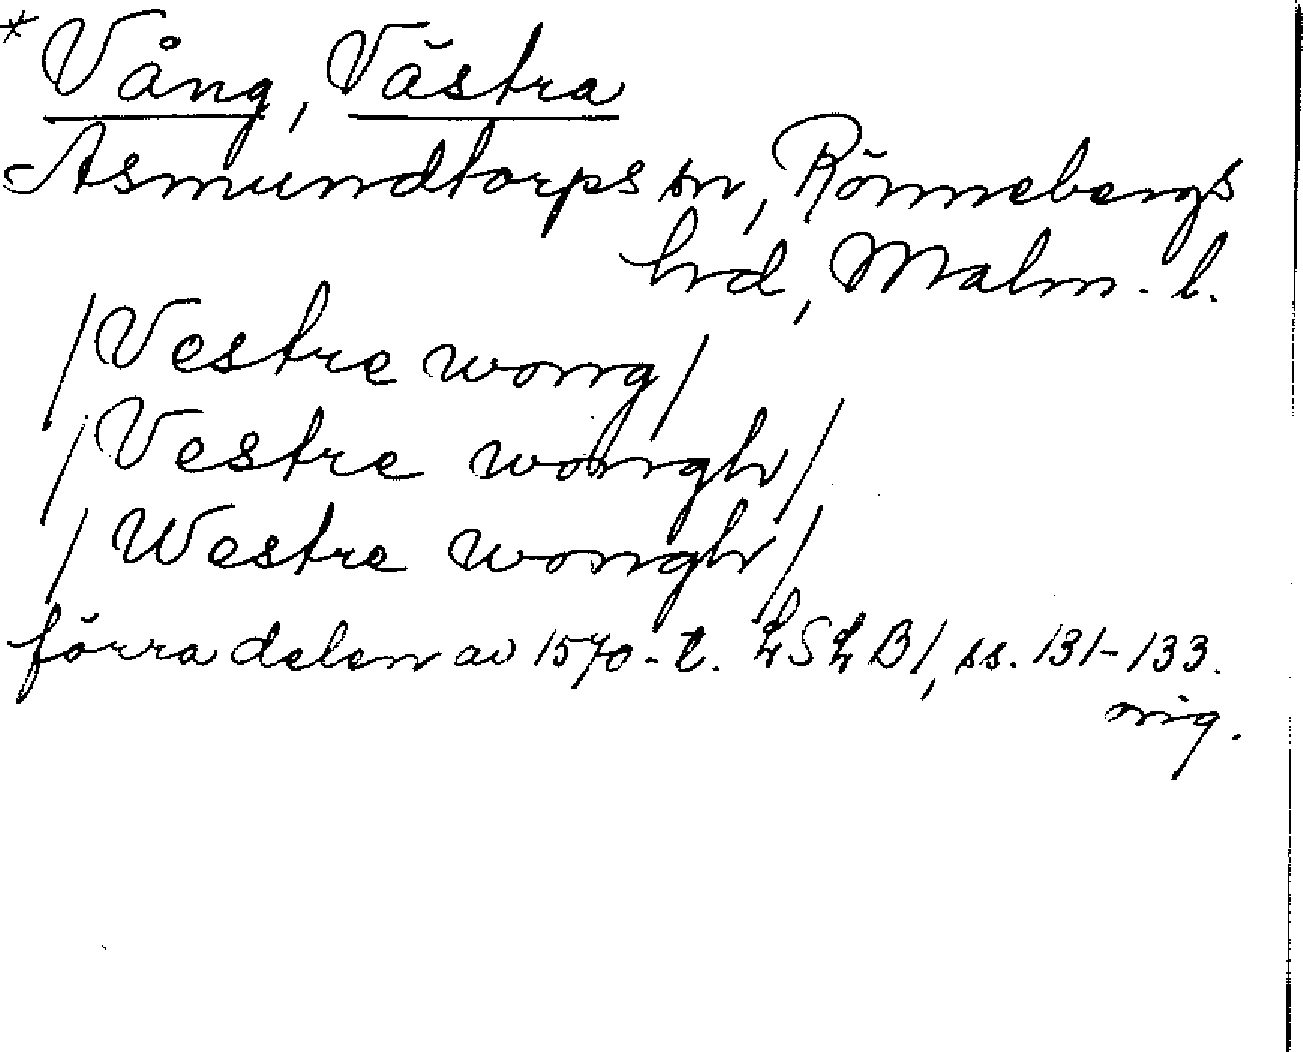 *Vång, Västra
Asmundtorps sn, Rönnebergs
hrd, Malm. l.
/Vestre wong/
/Vestre wongh/
/Westre wongh/
förra delen av 1570-t. LSLB1, ss. 131-133.
orig.